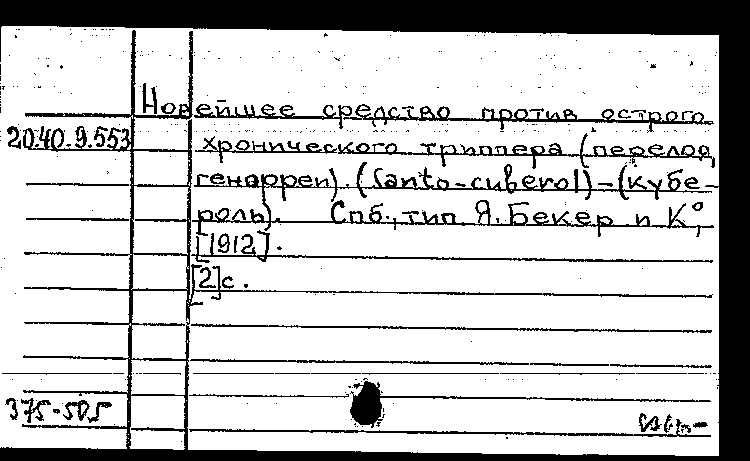 Новейшее средство против острого
20.40.9.553 хронического триппера (перелоя,
генорреи). (Santo-cuberol)-(кубе-
роль). Спб., тип. Я. Бекер и К°,
[1912].
[2]с.
375-505